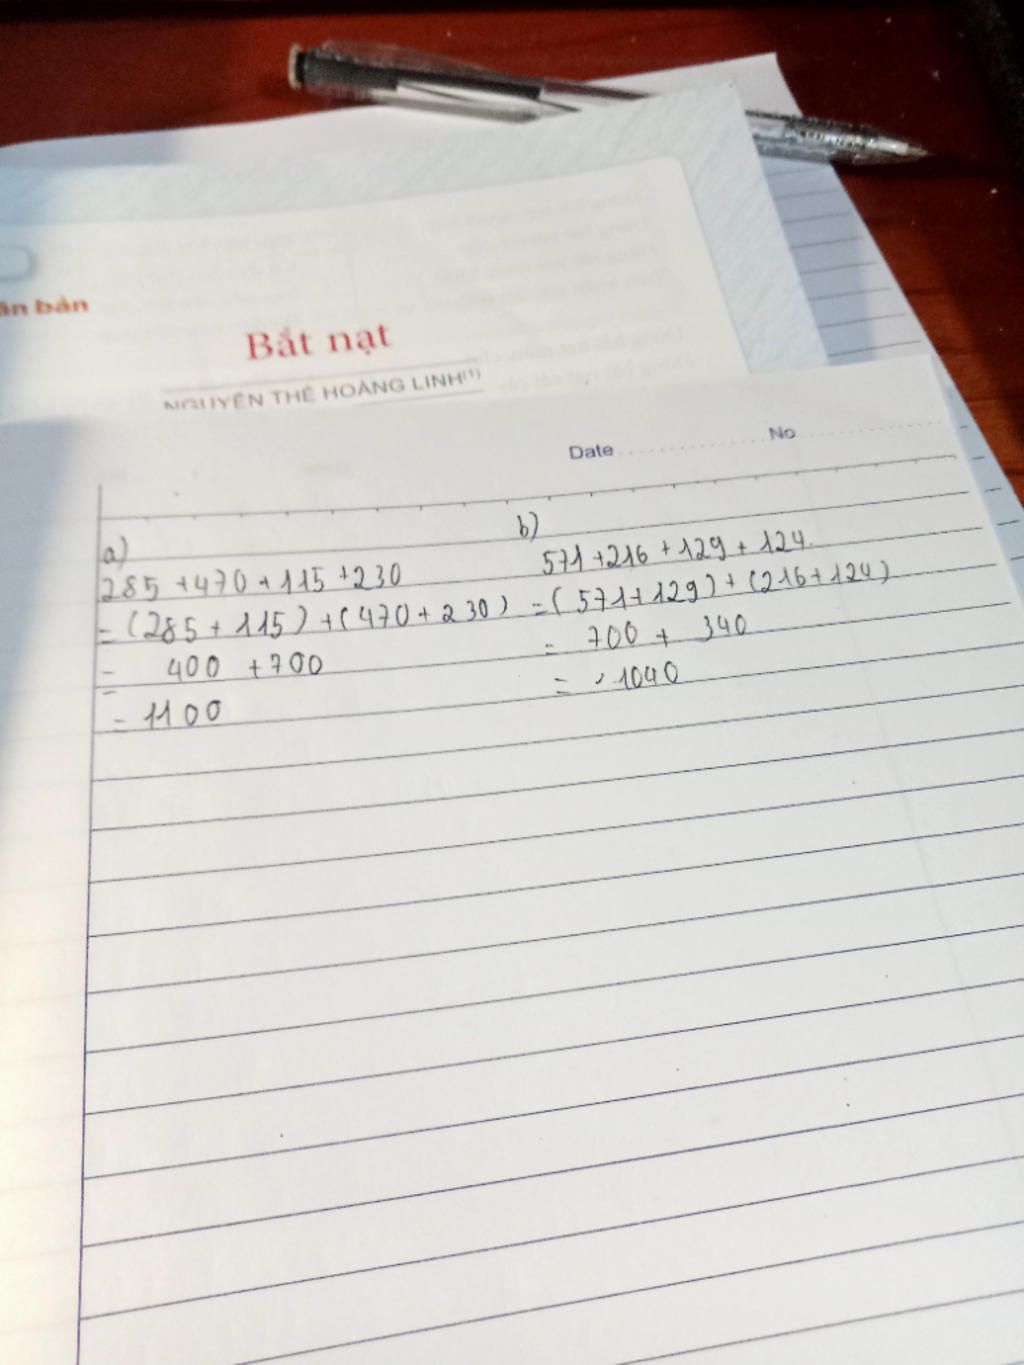 ăn bản
Bắt nạt
NGUYỄN THẾ HOÀNG LINH(1)
Date No
a)
285 + 470 + 115 + 230
= (285 + 115) + (470 + 230)
= 400 + 700
= 1100
b)
571 + 216 + 129 + 124
= (571 + 129) + (216 + 124)
= 700 + 340
= 1040